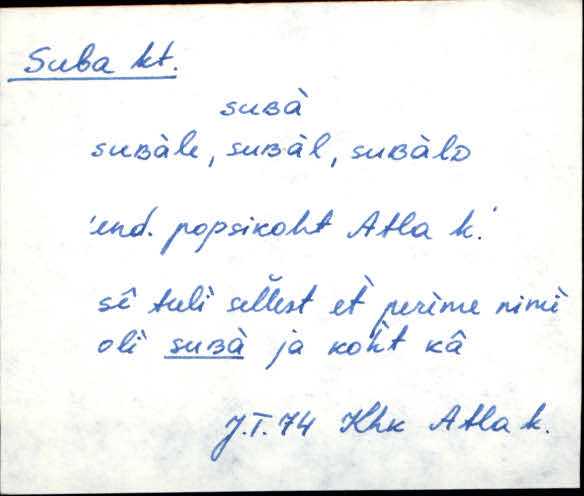 Suba kt.
suʙà
suʙàle, suʙàl, suʙàlᴅ
'end. popsikoht Atla k.'
sê tuli sellest et perìme nimì
oli suʙà ja koht kâ
J.T. 74 Khk Atla k.